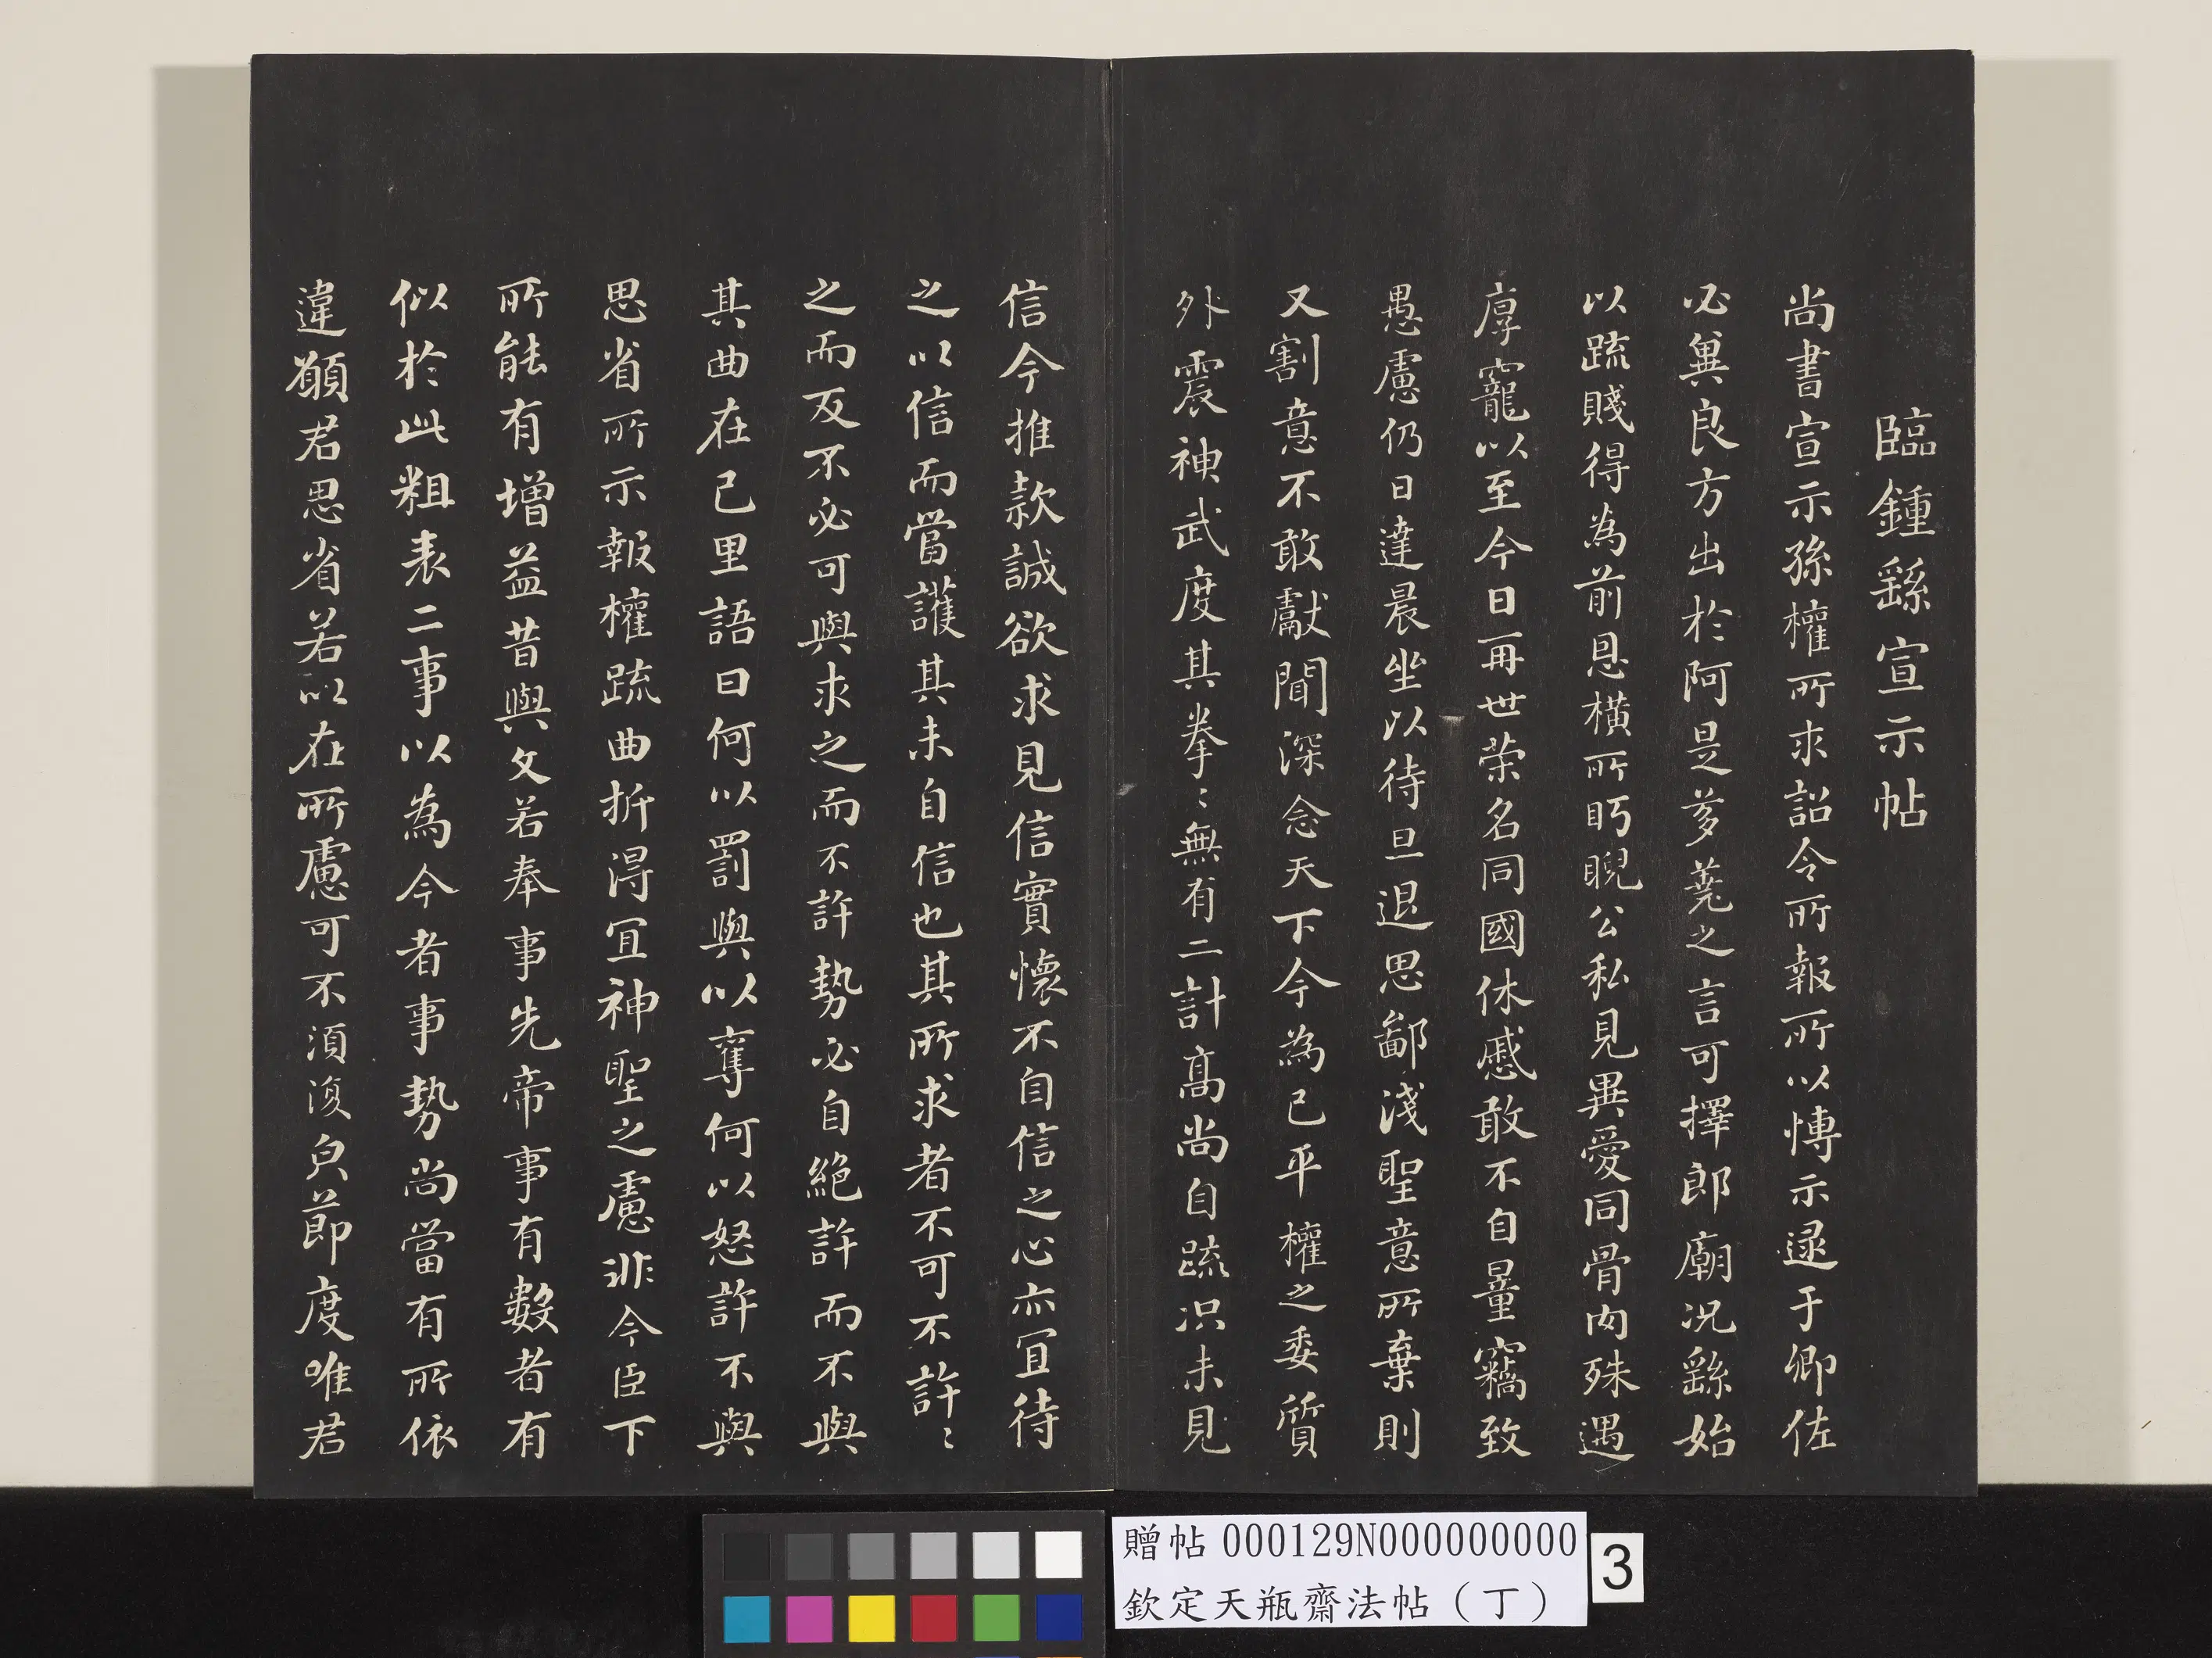 臨鍾繇宣示帖
尚書宣示孫權所求詔令所報所以博示逮于卿佐
必冀良方出於阿是芻蕘之言可擇郎廟況繇始
以疏賤得為前恩橫所眄睨公私見異愛同骨肉殊遇
厚寵以至今日再世榮名同國休慼敢不自量竊致
愚慮仍日達晨坐以待旦退思鄙淺聖意所棄則
又割意不敢獻聞深念天下今為已平權之委質
外震神武度其拳〻無有二計高尚自疏況未見
信今推款誠欲求見信實懷不自信之心亦宜待
之以信而當護其未自信也其所求者不可不許〻
之而反不必可與求之而不許勢必自絕許而不與
其曲在己里語曰何以罰與以奪何以怒許不與
思省所示報權疏曲折得宜神聖之慮非今臣下
所能有增益昔與文若奉事先帝事有數者有
似於此粗表二事以為今者事勢尚當有所依
違願君思省若以在所慮可不須復皃節度唯君
贈帖 000129N000000000
欽定天瓶齋法帖（丁）
3